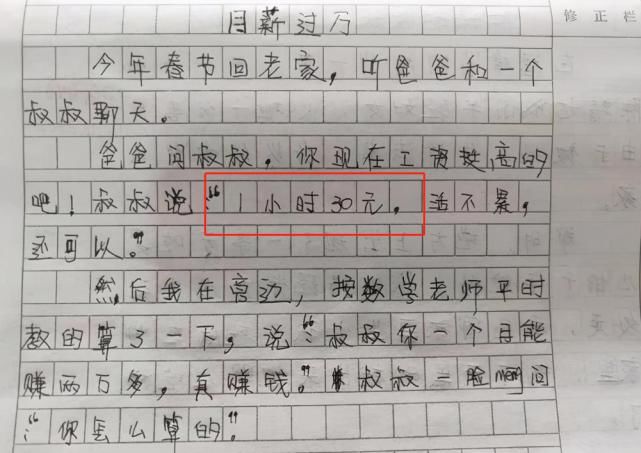 修正栏
月薪过万
今年春节回老家，听爸爸和一个
叔叔聊天。
爸爸问叔叔，你现在工资挺高的
吧！叔叔说：“1小时30元。活不累，
还可以。”
然后我在旁边，按数学老师平时
教的算了一下，说：“叔叔你一个月能
赚两万多，真赚钱。”叔叔一脸meng问
：“你怎么算的”。